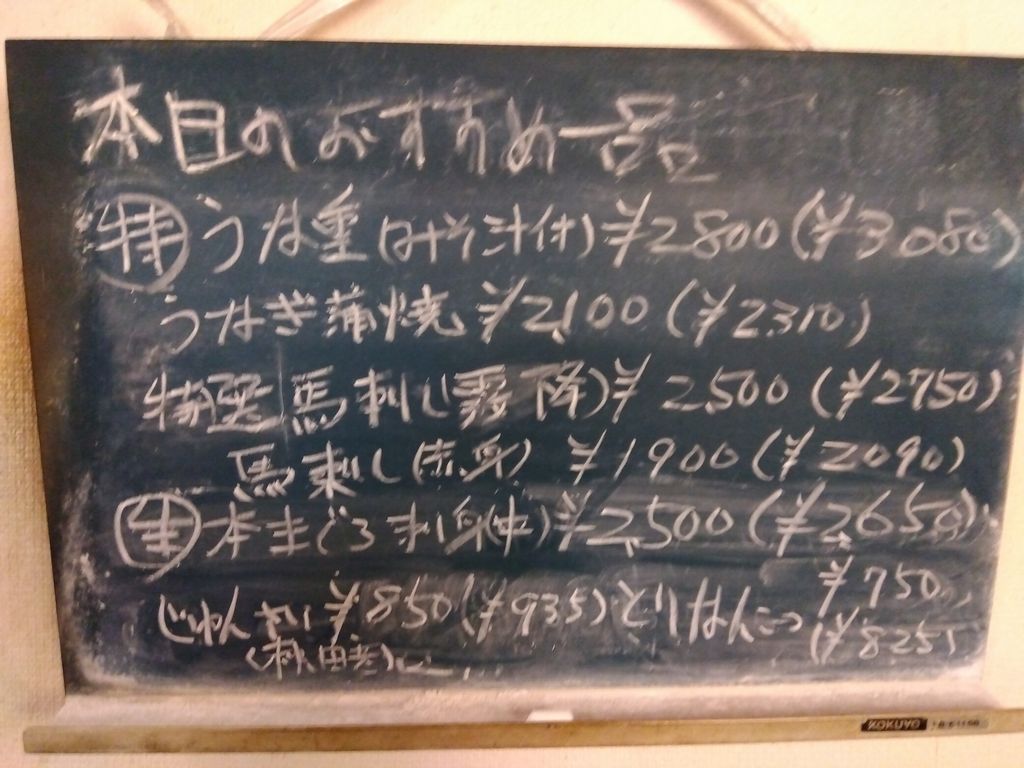 本日のおすすめ一品
特 うな重(みそ汁付)¥2800(¥3080)
うなぎ蒲焼 ¥2,100(¥2310)
特選馬刺し霜降)¥2500(¥2750)
馬刺し(赤身) ¥1900(¥2090)
生 本まぐろ刺身(中)¥2,500(¥2650)
じゅんさい¥850(¥935)とりなんこつ ¥750
(秋田産) (¥825)
KOKUYO